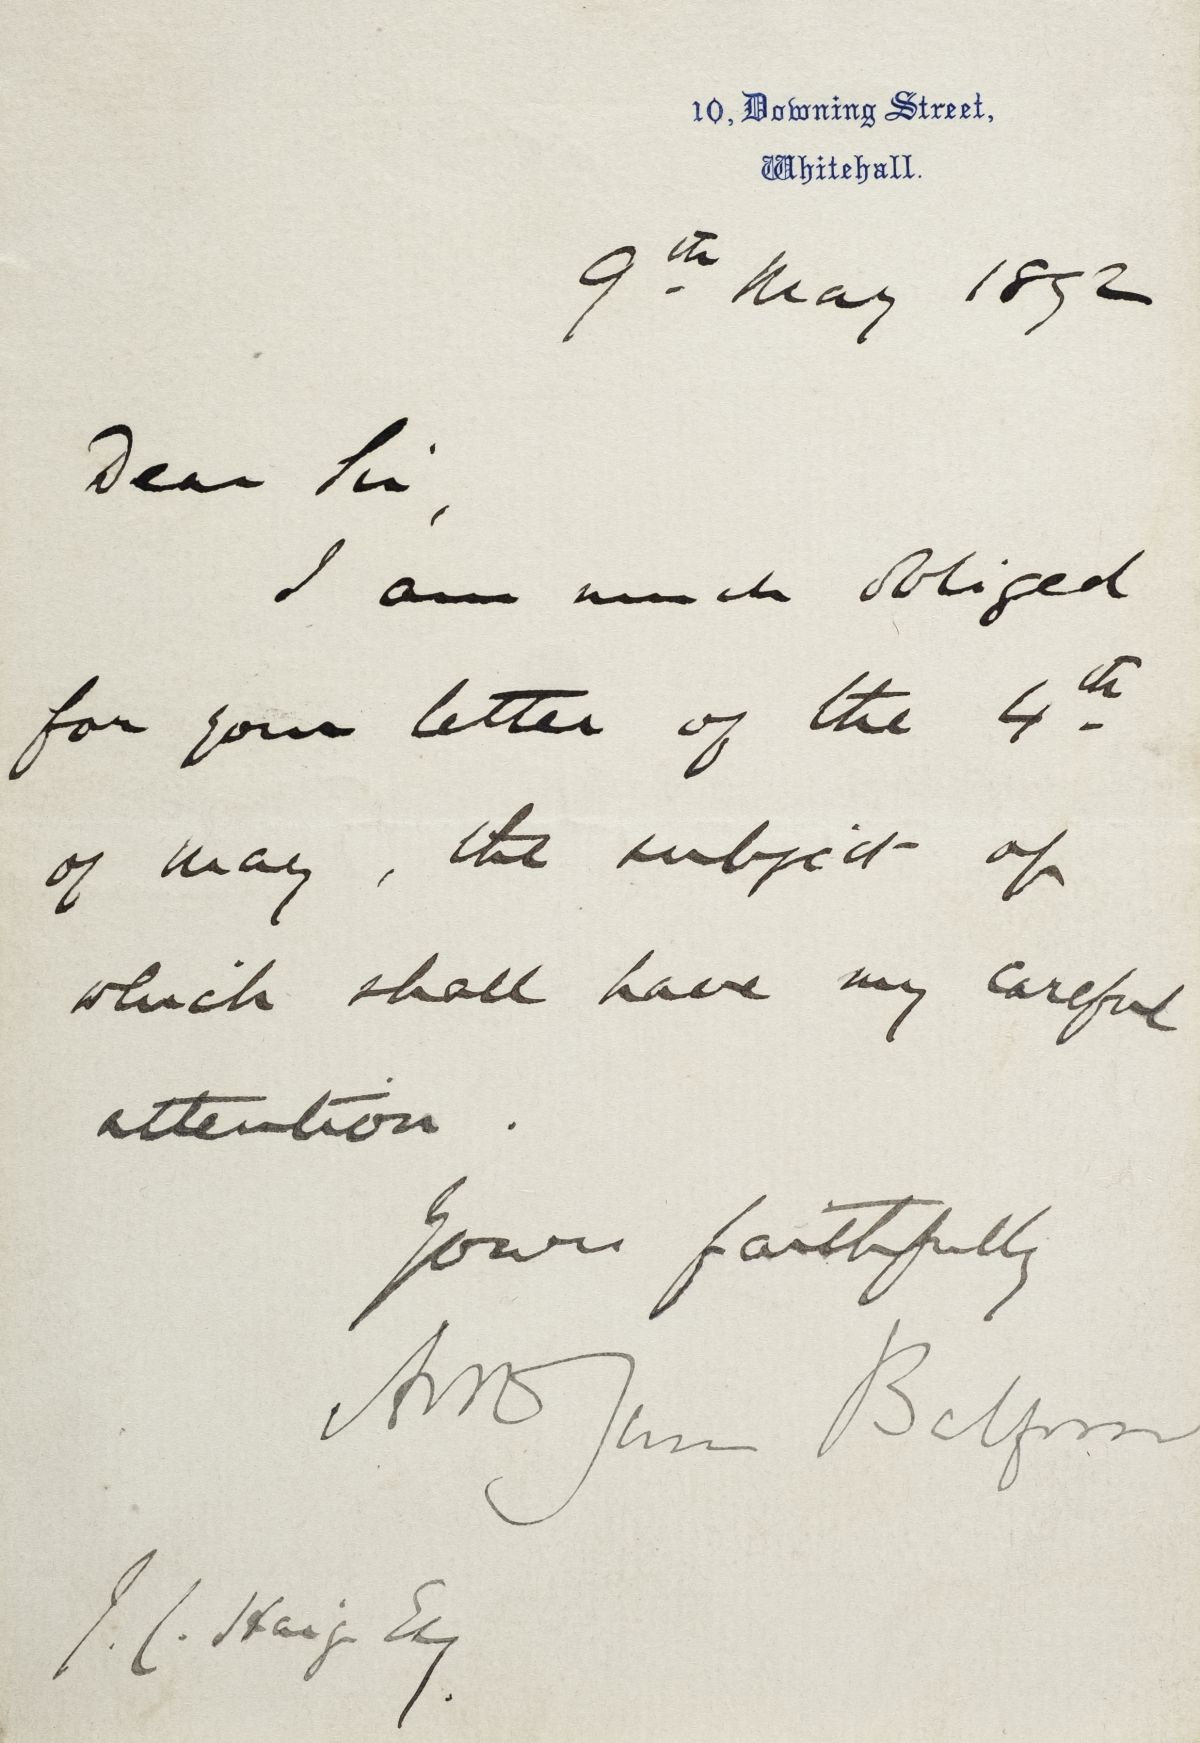 10, Downing Street,
Whitehall.
9th May 1892
Dear Sir,
I am much obliged
for your letter of the 4th
of May, the subject of
which shall have my careful
attention.
Yours faithfully
Arthur James Balfour
J. C. Haig Esq.